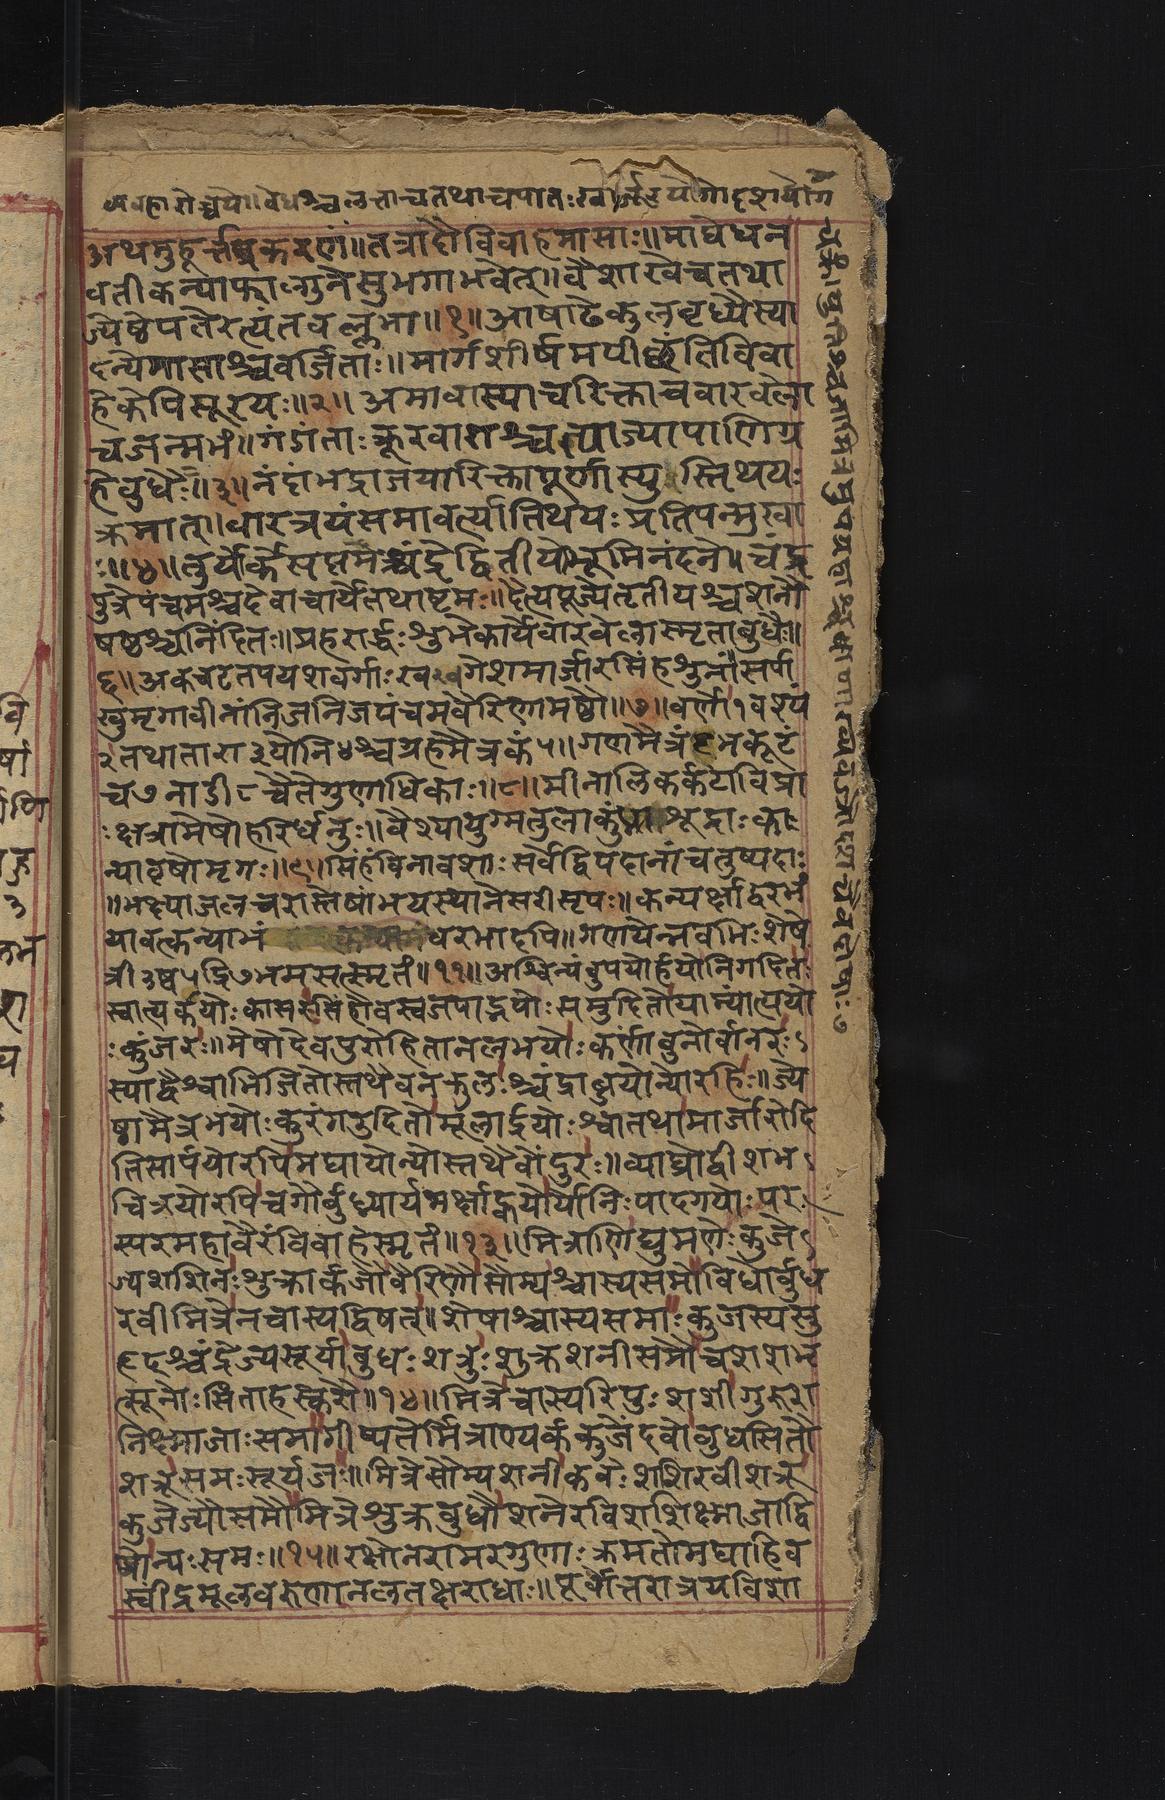 वेधश्चलत्ताचतथाचपातःखार्जूरयोगोदशयोग
चक्रं।युतिश्चजामित्रमुपग्रहाश्च
अथमुहूर्त्तप्रकरणं॥तत्रादौविवाहमासाः॥माघेधन
वतीकन्याफाल्गुनेसुभगाभवेत्॥वैशाखेचतथा
ज्येष्ठेपतेरत्यंतवल्लभा॥१॥आषाढेकुलवृध्यैस्या
दन्येमासाश्चवर्जिताः॥मार्गशीर्षमपीछंतिविवा
हेकेपिसूरयः॥२॥अमावास्याचरिक्ताचवारवेला
चजन्मभं॥गंडांताःक्रूरवाराश्चत्याज्यापाणिग्र
हेबुधैः॥३॥नंदाभद्राजयारिक्तापूर्णास्युस्तिथयः
क्रमात्॥वारत्रयंसमावर्त्यतिथयःप्रतिपन्मुखा
ः॥४॥तुर्योर्केसप्तमश्चंद्रेद्वितीयोभूमिनंदने॥चंद्र
पुत्रेपंचमश्चदेवाचार्येतथाष्टमः॥दैत्यपूज्येतृतीयश्चशनौ
षष्ठश्चनिंदितः॥प्रहरार्द्धःशुभेकार्येवारवेलास्मृताबुधैः॥
६॥अकचटतपयशवर्गाःखगेशमार्जारसिंहशुनां॥सर्पा
खुमृगावीनांनिजनिजपंचमवैरिणामष्टौ॥७॥वर्णो१वश्यं
२तथातारा३योनि४श्चग्रहमैत्रकं५॥गणमैत्रं६भकूटं
च७नाडी८चैतेगुणाधिकाः॥८॥मीनालिकर्कटाविप्रा
ःक्षत्रामेषोहरिर्धनुः॥वैश्यायुग्मतुलाकुंभाःशूद्राःक
न्यावृषोमृगः॥९॥सिंहंविनावशाःसर्वेद्विपदानांचतुष्पदाः
॥भक्ष्याजलचरास्तेषांभयस्थानेसरीसृपः॥कन्यर्क्षाद्वरभं
यावत्कन्याभंवरभादपि॥गणयेन्नवभिःशेषे
त्री३ष्व५द्रि७भमसत्स्मृतं॥११॥अश्विन्यंबुपयोर्हयोनिगदितः
स्वात्यर्कयोःकासरःसिंहोवस्वजपाद्भयोःसमुदितोयाम्यांत्ययो
ःकुंजरः॥मेषोदेवपुरोहितानलभयोःकर्णांबुनोर्वानरः
स्याद्वैश्वाभिजितोस्तथैवनकुलःश्चंद्राब्जयोन्योरहिः॥ज्ये
ष्ठामैत्रभयोःकुरंगउदितोमूलार्द्रयोःश्वातथामार्जारोदि
तिसार्पयोरपिमघायोन्योस्तथैवोंदुरः॥व्याघ्रोद्वीशभ
चित्रयोरपिचगौर्बुध्न्यार्यमर्क्षाह्वयोर्योनिःपादगयोःपर
स्परमहावैरंविवाहेस्मृतं॥१३॥मित्राणिद्युमणेःकुजे
ज्यशशिनःशुक्रार्कजौवैरिणौसौम्यश्चास्यसमोविधोर्बुध
रवीमित्रेनचास्यद्विषत्॥शेषाश्चास्यसमाःकुजस्यसु
हृदश्चंद्रेज्यसूर्याबुधःशत्रुःशुक्रशनीसमौचशशभृ
त्सूनोःसिताहस्करौ॥१४॥मित्रेचास्यरिपुःशशीगुरुश
निक्ष्माजाःसमागीष्पतेर्मित्राण्यर्ककुजेंदवोबुधसितौ
शत्रूसमःसूर्यजः॥मित्रेसौम्यशनीकवेःशशिरवीशत्रू
कुजेज्यौसमौमित्रेशुक्रबुधौशनेरविशशिक्ष्माजाद्वि
षोन्यःसमः॥१५॥रक्षोनरामरगुणाःक्रमतोमघाहिव
स्वींद्रमूलवरुणानलतक्षराधाः॥पूर्वोत्तरात्रयविशा